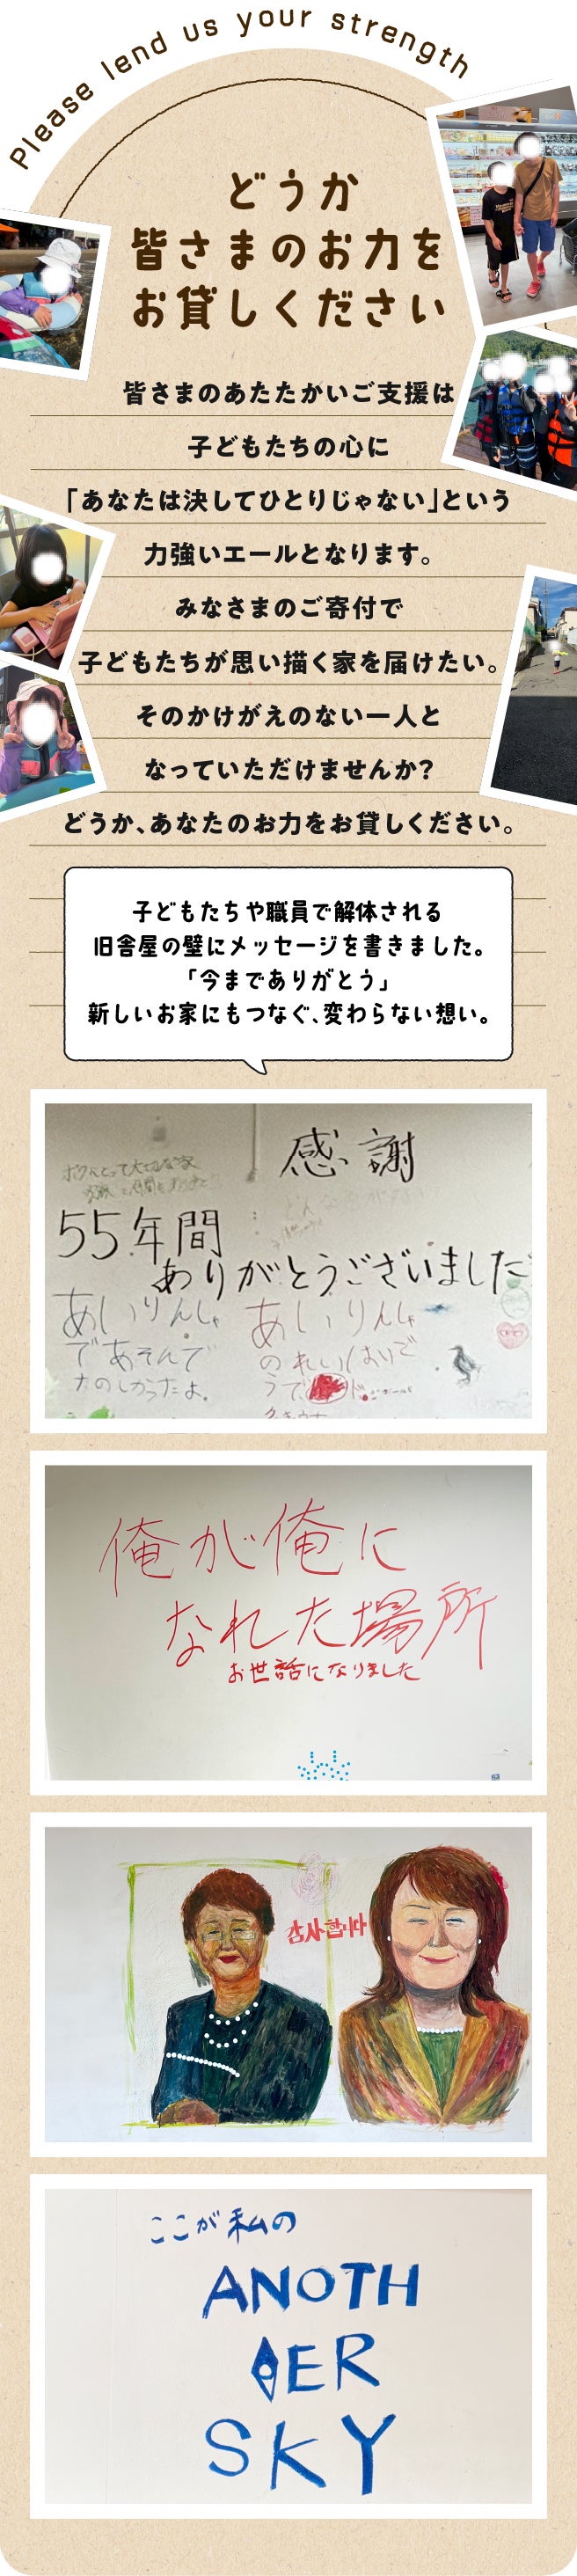 Please lend us your strength
どうか
皆さまのお力を
お貸しください
皆さまのあたたかいご支援は
子どもたちの心に
「あなたは決してひとりじゃない」という
力強いエールとなります。
みなさまのご寄付で
子どもたちが思い描く家を届けたい。
そのかけがえのない一人と
なっていただけませんか?
どうか、あなたのお力をお貸しください。
子どもたちや職員で解体される
旧舎屋の壁にメッセージを書きました。
「今までありがとう」
新しいお家にもつなぐ、変わらない想い。
感謝
55年間
ありがとうございました
あいりんしゃ
であそんで
たのしかったよ。
あいりんしゃ
俺が俺に
なれた場所
お世話になりました
감사합니다
ここが私の
ANOTH
ER
SKY